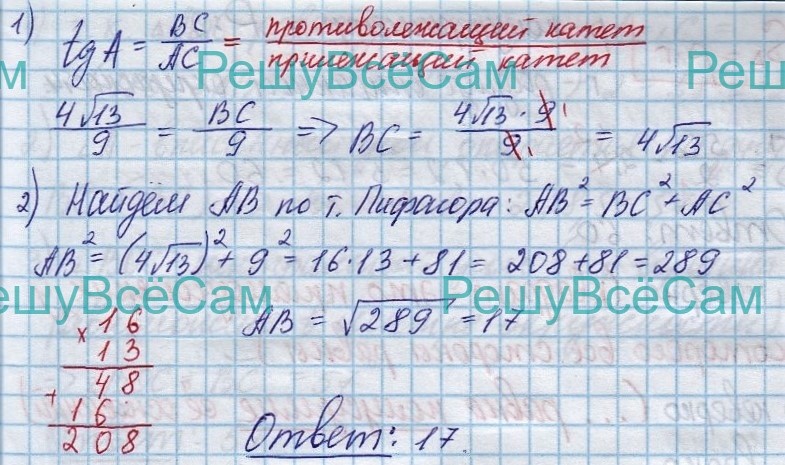 1) tg A = BC/AC = противолежащий катет/прилежащий катет
РешуВсёСам
4√13/9 = BC/9 => BC = 4√13 · 9/9 = 4√13
2) Найдём AB по т. Пифагора: AB² = BC² + AC²
AB² = (4√13)² + 9² = 16·13 + 81 = 208 + 81 = 289
РешуВсёСам РешуВсёСам
AB = √289 = 17
× 16
13
48
+ 16
208
Ответ: 17.